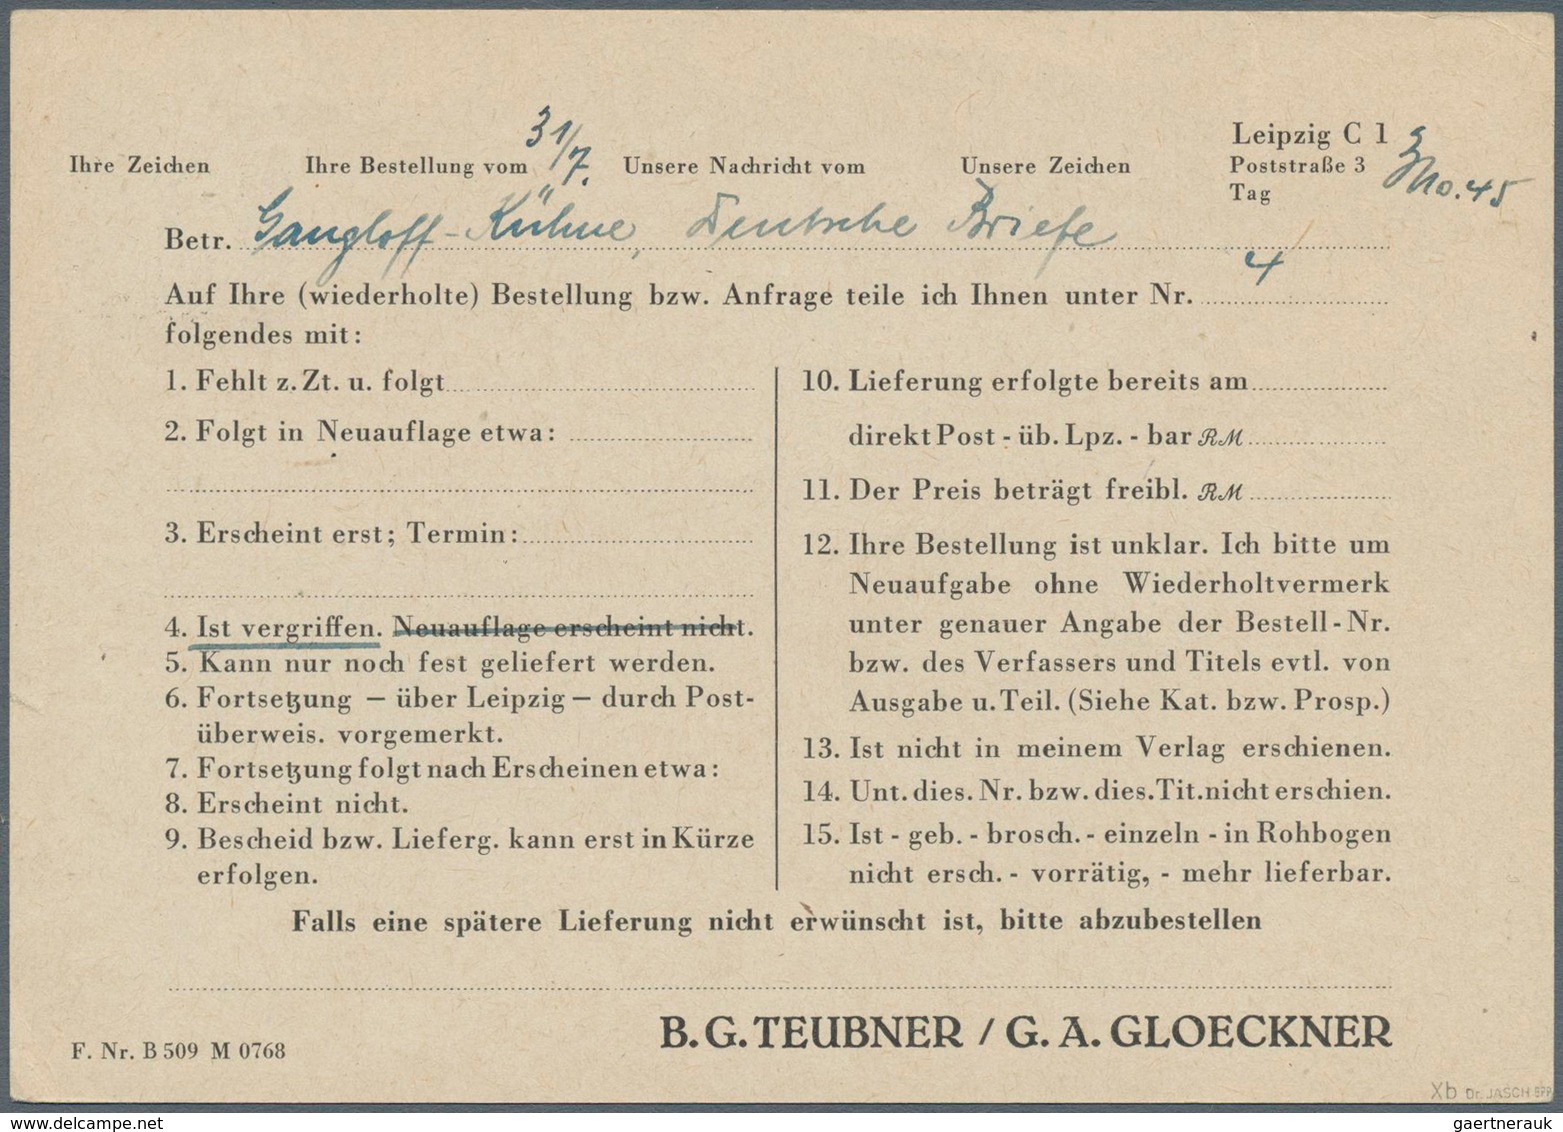 Leipzig C 1
Ihre Zeichen Ihre Bestellung vom 31/7. Unsere Nachricht vom Unsere Zeichen Poststraße 3
Tag
Betr. Gangloff-Kühne, Deutsche Briefe
Auf Ihre (wiederholte) Bestellung bzw. Anfrage teile ich Ihnen unter Nr. 4
folgendes mit:
1. Fehlt z. Zt. u. folgt
2. Folgt in Neuauflage etwa:
3. Erscheint erst; Termin:
4. Ist vergriffen. Neuauflage erscheint nicht.
5. Kann nur noch fest geliefert werden.
6. Fortsetzung – über Leipzig – durch Post-
überweis. vorgemerkt.
7. Fortsetzung folgt nach Erscheinen etwa:
8. Erscheint nicht.
9. Bescheid bzw. Lieferg. kann erst in Kürze
erfolgen.
10. Lieferung erfolgte bereits am
direkt Post - üb. Lpz. - bar RM
11. Der Preis beträgt freibl. RM
12. Ihre Bestellung ist unklar. Ich bitte um
Neuaufgabe ohne Wiederholtvermerk
unter genauer Angabe der Bestell-Nr.
bzw. des Verfassers und Titels evtl. von
Ausgabe u. Teil. (Siehe Kat. bzw. Prosp.)
13. Ist nicht in meinem Verlag erschienen.
14. Unt. dies. Nr. bzw. dies. Tit. nicht erschien.
15. Ist - geb. - brosch. - einzeln - in Rohbogen
nicht ersch. - vorrätig, - mehr lieferbar.
Falls eine spätere Lieferung nicht erwünscht ist, bitte abzubestellen
B. G. TEUBNER / G. A. GLOECKNER
F. Nr. B 509 M 0768
Xb Dr. JASCH BPP
gaertnerauk